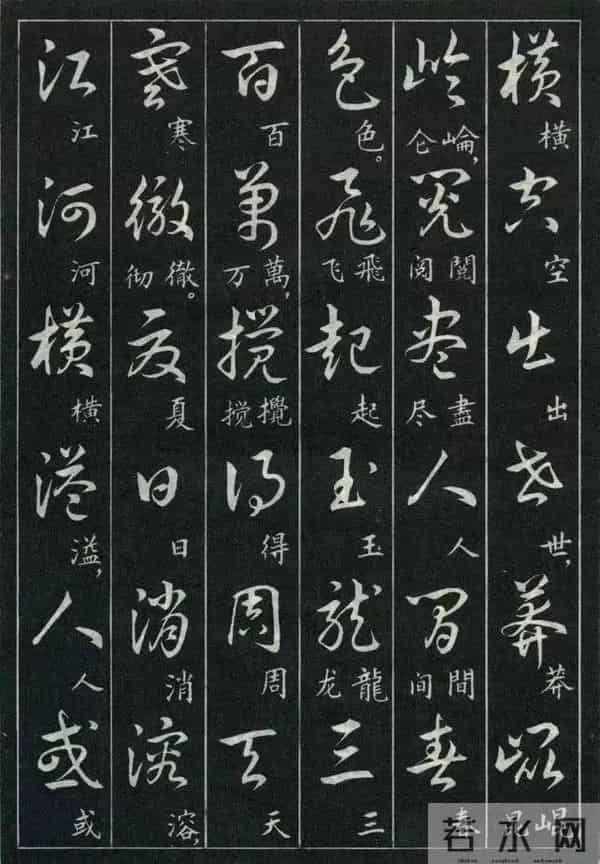 横空出世莽崐
橫空出世,莽崐昆
崘閱盡人間春
崘,仑閱阅盡尽人間间春
色飛起玉龍三
色。飛飞起玉龍龙三
百萬攪得周天
百萬,万攪搅得周天
寒徹夏日消溶
寒徹。彻夏日消溶,
江河横溢人或
江河橫溢,人或
若水网